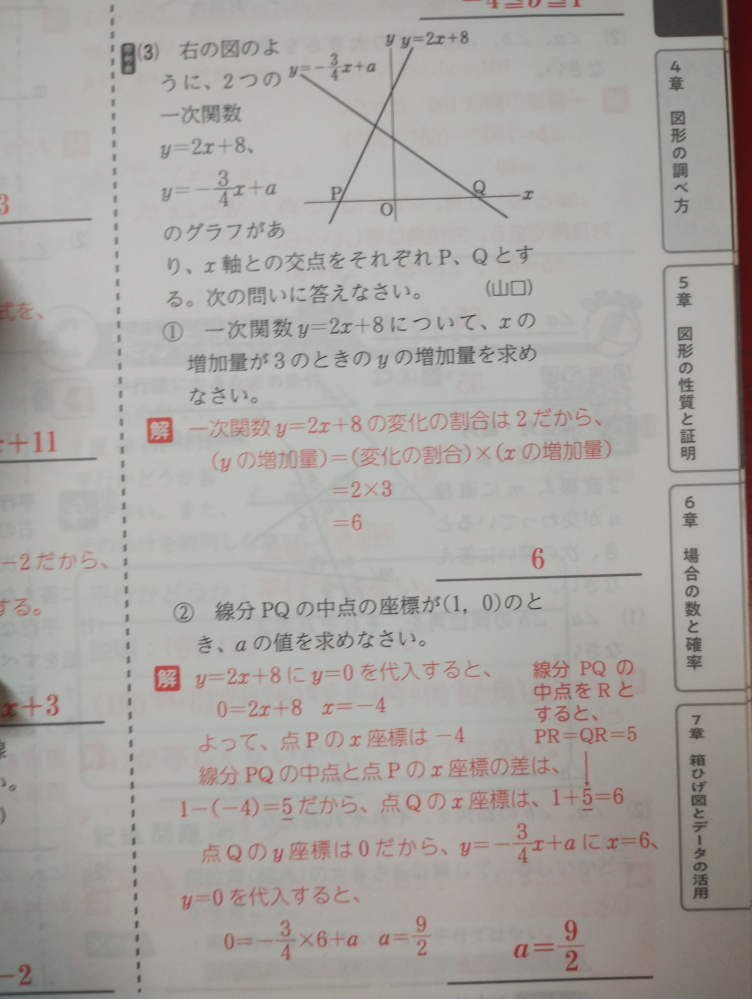 -4≦b≦1
(3) 右の図のよ
うに、2つの
一次関数
y=2x+8、
y=-3/4x+a
のグラフがあ
y
y=2x+8
y=-3/4x+a
P
O
Q
x
り、x軸との交点をそれぞれP、Qとす
る。次の問いに答えなさい。 (山口)
① 一次関数y=2x+8について、xの
増加量が3のときのyの増加量を求め
なさい。
解 一次関数y=2x+8の変化の割合は2だから、
(yの増加量)=(変化の割合)×(xの増加量)
=2×3
=6
6
② 線分PQの中点の座標が(1, 0)のと
き、aの値を求めなさい。
解 y=2x+8にy=0を代入すると、
0=2x+8 x=-4
よって、点Pのx座標は-4
線分PQの
中点をRと
すると、
PR=QR=5
線分PQの中点と点Pのx座標の差は、
1-(-4)=5だから、点Qのx座標は、1+5=6
点Qのy座標は0だから、y=-3/4x+aにx=6、
y=0を代入すると、
0=-3/4×6+a a=9/2
a=9/2
4章 図形の調べ方
5章 図形の性質と証明
6章 場合の数と確率
7章 箱ひげ図とデータの活用
3
式を、
+11
-2だから、
する。
x+3
-2